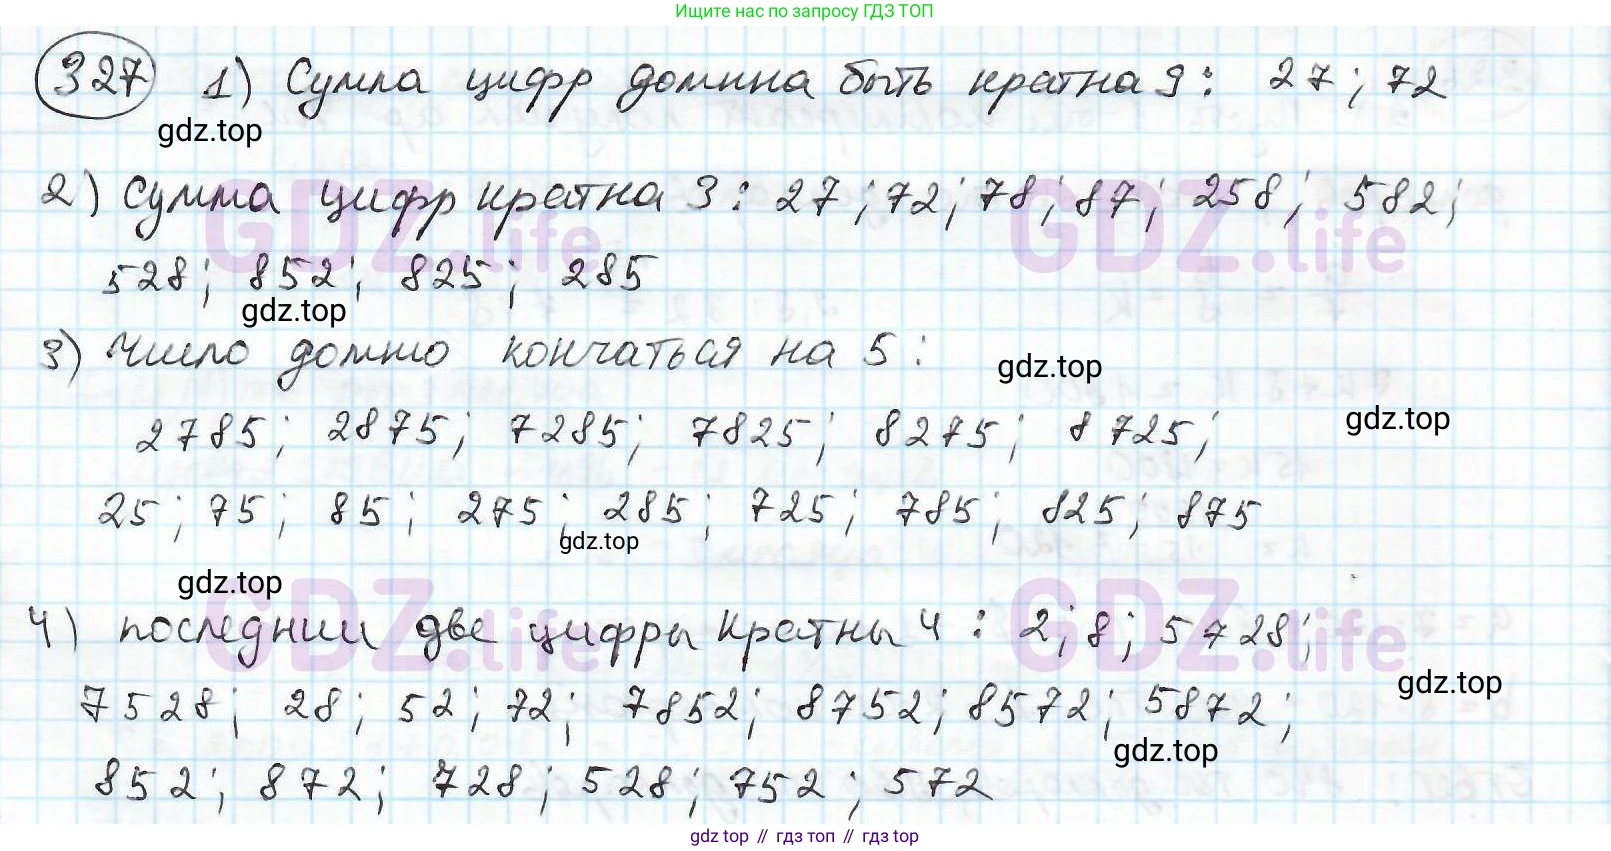 Ищите нас по запросу ГДЗ ТОП
327 1) Сумма цифр должна быть кратна 9: 27; 72
gdz.top
2) Сумма цифр кратна 3: 27; 72; 78; 87; 258; 582;
GDZ.life GDZ.life
528; 852; 825; 285
gdz.top
3) Число должно кончаться на 5:
gdz.top
2785; 2875; 7285; 7825; 8275; 8725;
gdz.top
25; 75; 85; 275; 285; 725; 785; 825; 875
gdz.top
gdz.top
4) последнии две цифры кратны 4: 2; 8; 5728;
GDZ.life GDZ.life
7528; 28; 52; 72; 7852; 8752; 8572; 5872;
gdz.top
gdz.top
852; 872; 728; 528; 752; 572
gdz top // гдз топ // гдз top